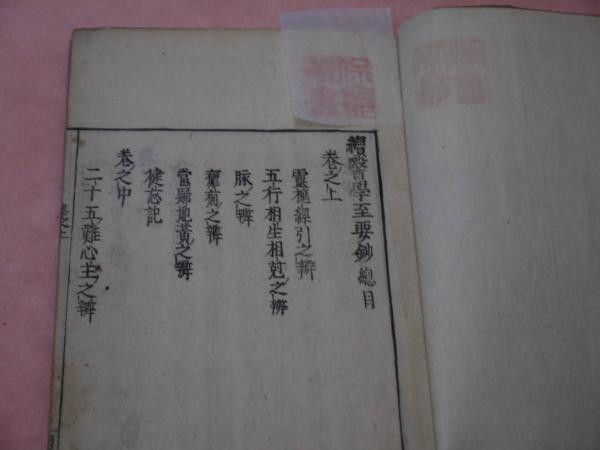 續醫學至要鈔總目
卷之上
靈樞經引之辨
五行相生相尅之辨
脉之辨
當歸地黃之辨
健忘記
卷之中
二十五難心主之辨